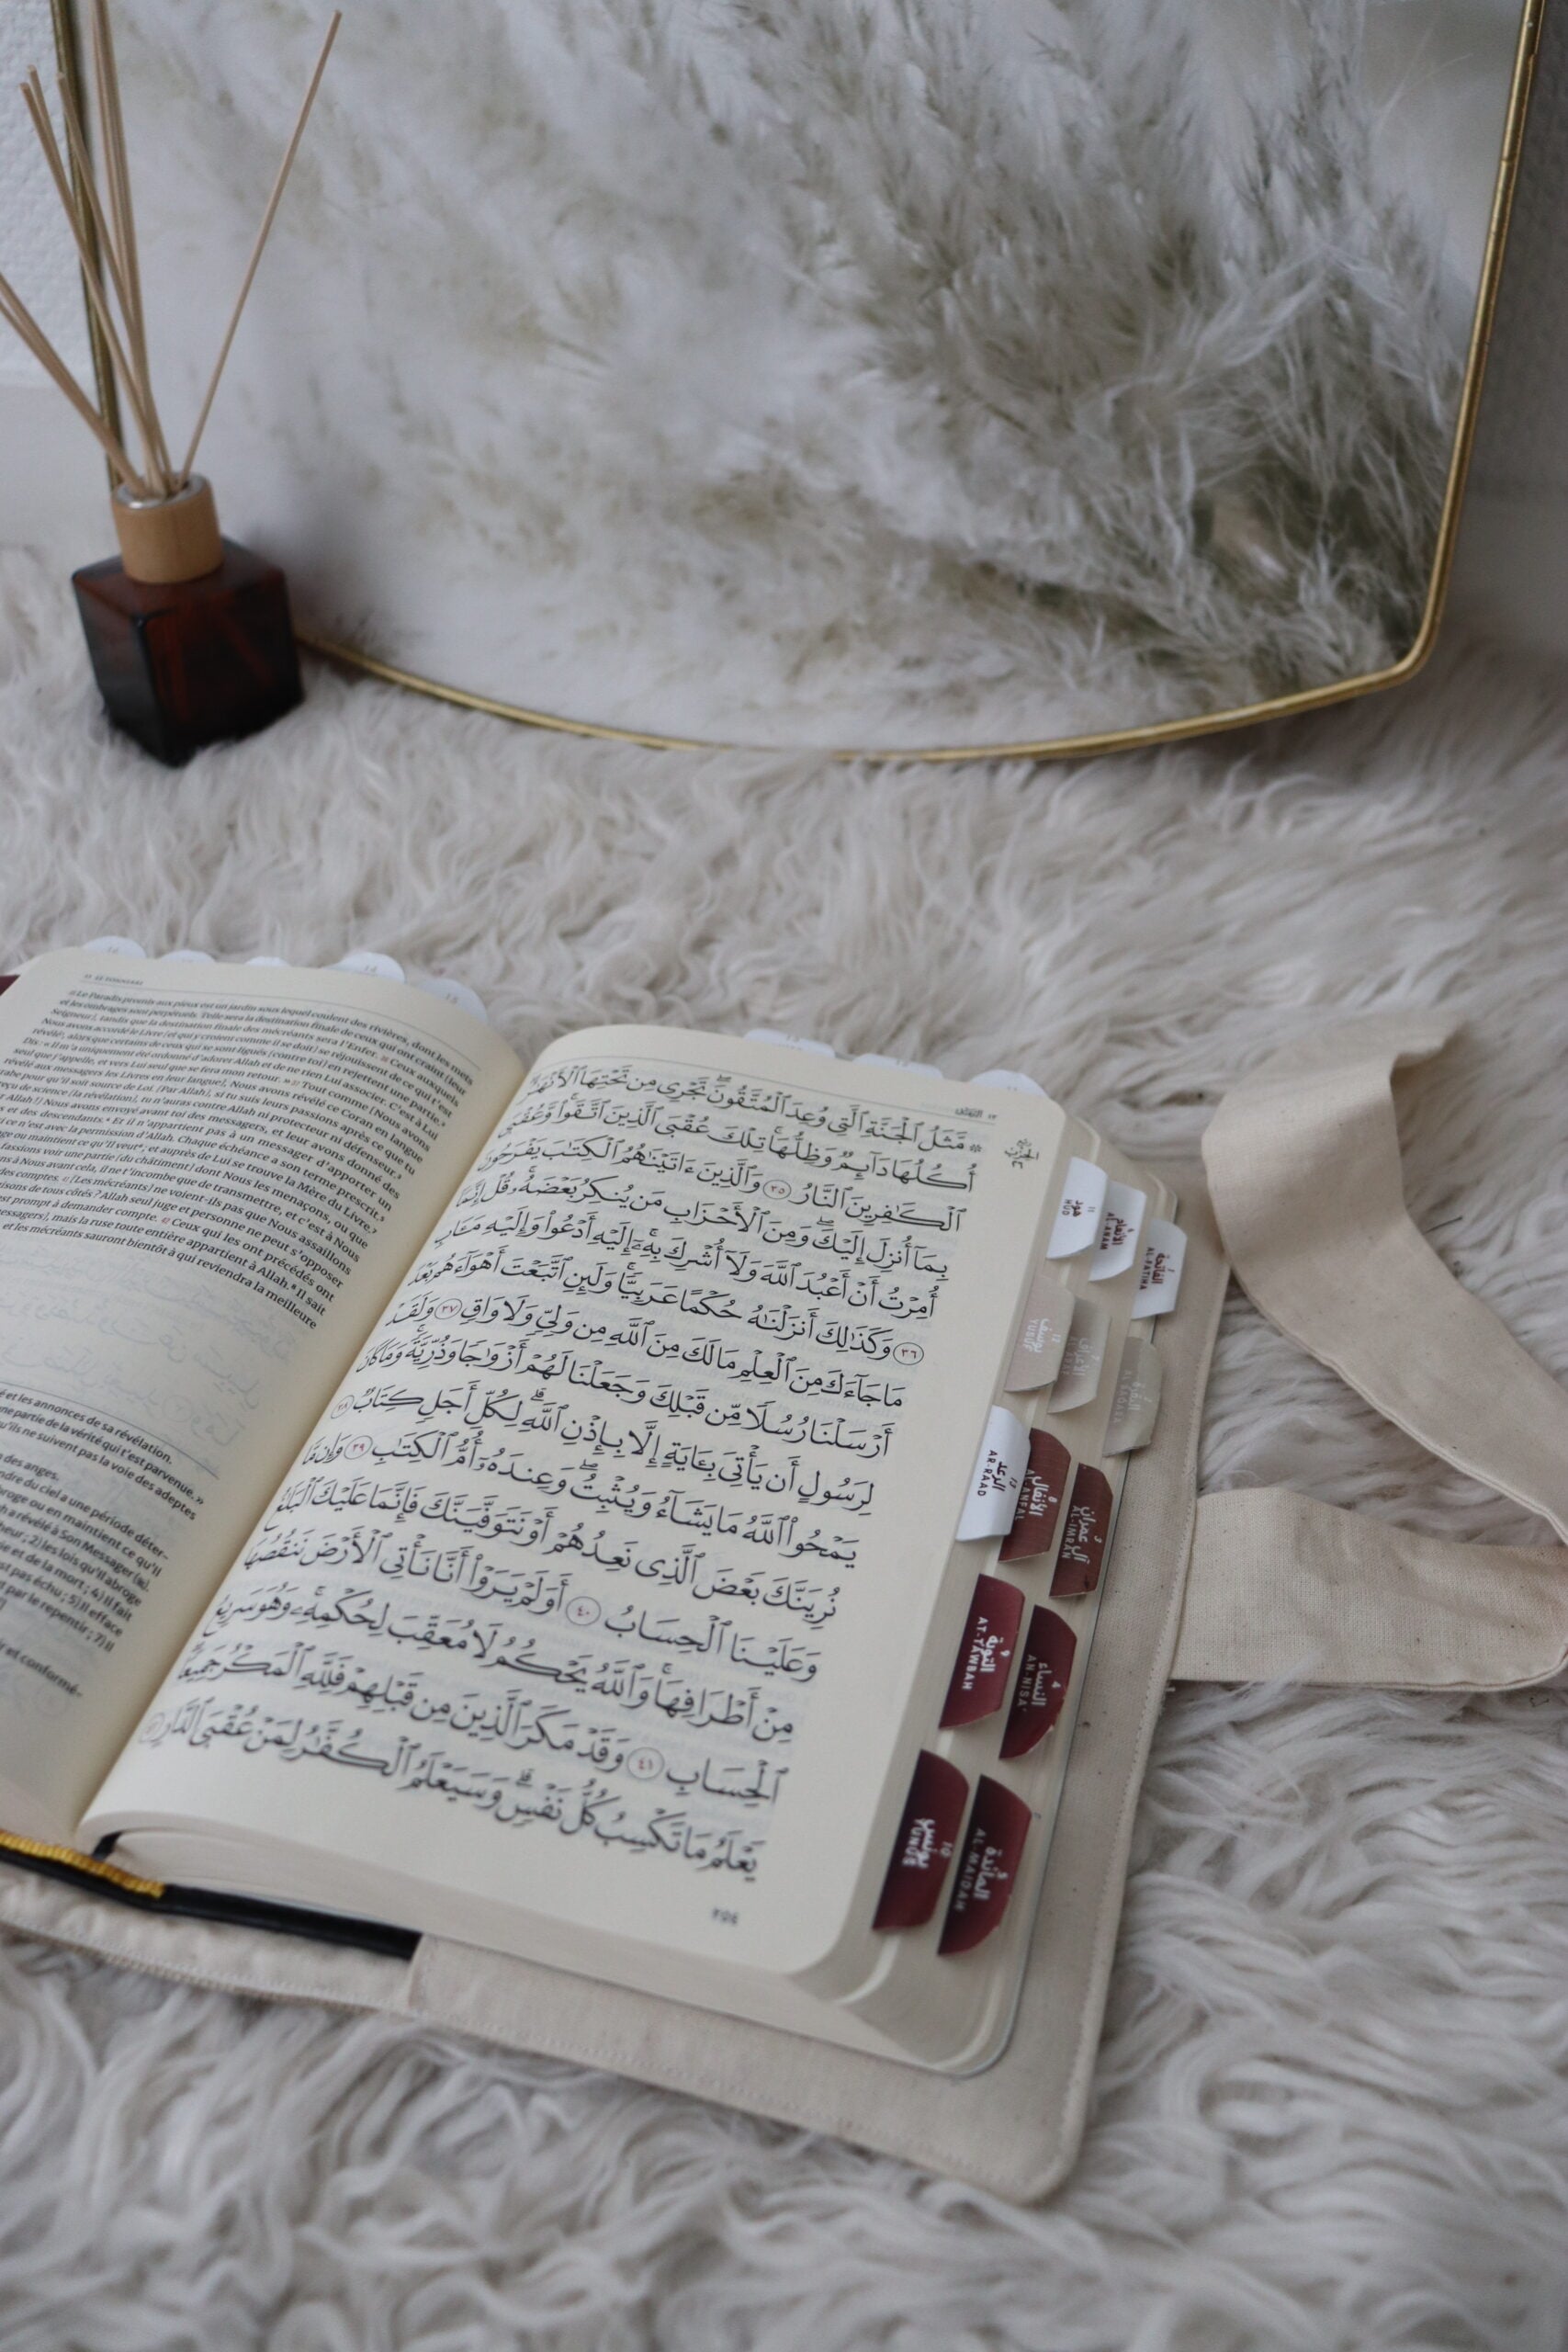 «Le Paradis promis aux pieux est un jardin sous lequel coulent des rivières, dont les mets
et les ombrages sont perpétuels. Telle sera la destination finale de ceux qui ont craint (leur
Seigneur), tandis que la destination finale des mécréants sera l'Enfer. Ceux auxquels
Nous avons accordé le Livre (et qui y croient comme il se doit) se réjouissent de ce qui t'est
révélé, alors que certains de ceux qui se sont ligués (contre toi) en rejettent une partie.
Dis : « Il m'a uniquement été ordonné d'adorer Allah et de ne rien Lui associer. C'est à Lui
seul que j'appelle, et vers Lui seul que se fera mon retour. » Tout comme (Nous avons
révélé aux messagers les Livres en leur langue), Nous avons révélé ce Coran en langue
rabe pour qu'il soit source de Loi. (Par Allah), si tu suis leurs passions après ce que tu
reçu de science (la révélation), tu n'auras contre Allah ni protecteur ni défenseur.
Allah!) Nous avons envoyé avant toi des messagers, et leur avons donné des
s et des descendants. Et il n'appartient pas à un messager d'apporter un
i ce n'est avec la permission d'Allah. Chaque échéance a son terme prescrit.
ge ou maintient ce qu'Il veut, et auprès de Lui se trouve la Mère du Livre.
fassions voir une partie (du châtiment) dont Nous les menaçons, ou que
s à Nous avant cela, il ne t'incombe que de transmettre, et c'est à Nous
des comptes. (Les mécréants) ne voient-ils pas que Nous assaillons
isons de tous côtés? Allah seul juge et personne ne peut s'opposer
st prompt à demander compte. Ceux qui les ont précédés ont
messagers), mais la ruse toute entière appartient à Allah. Il sait
et les mécréants sauront bientôt à qui reviendra la meilleure
é et les annonces de sa révélation.
ne partie de la vérité qui t'est parvenue. »
u'ils ne suivent pas la voie des adeptes
des anges.
ndre du ciel a une période déter-
broge ou en maintient ce qu'Il
h a révélé à Son Messager (ﷺ).
heur ; 2) les lois qu'il abroge
ie et de la mort ; 4) il fait
st pas échu ; 5) Il efface
par le repentir ; 7) Il
ir et conformé-
١٣ الرعد
الجزء
۞ مَّثَلُ ٱلْجَنَّةِ ٱلَّتِى وُعِدَ ٱلْمُتَّقُونَۖ تَجْرِى مِن تَحْتِهَا ٱلْأَنْهَٰرُۖ
أُكُلُهَا دَآئِمٌ وَظِلُّهَاۚ تِلْكَ عُقْبَى ٱلَّذِينَ ٱتَّقَوا۟ۖ وَّعُقْبَى
ٱلْكَٰفِرِينَ ٱلنَّارُ ٣٥ وَٱلَّذِينَ ءَاتَيْنَٰهُمُ ٱلْكِتَٰبَ يَفْرَحُونَ
بِمَآ أُنزِلَ إِلَيْكَۖ وَمِنَ ٱلْأَحْزَابِ مَن يُنكِرُ بَعْضَهُۥۚ قُلْ إِنَّمَآ
أُمِرْتُ أَنْ أَعْبُدَ ٱللَّهَ وَلَآ أُشْرِكَ بِهِۦٓۚ إِلَيْهِ أَدْعُوا۟ وَإِلَيْهِ مَـَٔابِ
٣٦ وَكَذَٰلِكَ أَنزَلْنَٰهُ حُكْمًا عَرَبِيًّاۚ وَلَئِنِ ٱتَّبَعْتَ أَهْوَآءَهُم بَعْدَ
مَا جَآءَكَ مِنَ ٱلْعِلْمِ مَا لَكَ مِنَ ٱللَّهِ مِن وَلِىٍّ وَلَا وَاقٍ ٣٧ وَلَقَدْ
أَرْسَلْنَا رُسُلًا مِّن قَبْلِكَ وَجَعَلْنَا لَهُمْ أَزْوَٰجًا وَذُرِّيَّةًۚ وَمَا كَانَ
لِرَسُولٍ أَن يَأْتِىَ بِـَٔايَةٍ إِلَّا بِإِذْنِ ٱللَّهِۗ لِكُلِّ أَجَلٍ كِتَابٌ ٣٨
يَمْحُوا۟ ٱللَّهُ مَا يَشَآءُ وَيُثْبِتُۖ وَعِندَهُۥٓ أُمُّ ٱلْكِتَٰبِ ٣٩ وَإِن مَّا
نُرِيَنَّكَ بَعْضَ ٱلَّذِى نَعِدُهُمْ أَوْ نَتَوَفَّيَنَّكَ فَإِنَّمَا عَلَيْكَ ٱلْبَلَٰغُ
وَعَلَيْنَا ٱلْحِسَابُ ٤٠ أَوَلَمْ يَرَوْا۟ أَنَّا نَأْتِى ٱلْأَرْضَ نَنقُصُهَا
مِنْ أَطْرَافِهَاۚ وَٱللَّهُ يَحْكُمُ لَا مُعَقِّبَ لِحُكْمِهِۦۚ وَهُوَ سَرِيعُ
ٱلْحِسَابِ ٤١ وَقَدْ مَكَرَ ٱلَّذِينَ مِن قَبْلِهِمْ فَلِلَّهِ ٱلْمَكْرُ جَمِيعًاۖ
يَعْلَمُ مَا تَكْسِبُ كُلُّ نَفْسٍۗ وَسَيَعْلَمُ ٱلْكُفَّٰرُ لِمَنْ عُقْبَى ٱلدَّارِ ٤٢
٢٥٤
١١ هود HUD
الأنعام AL-AN'AM
الفاتحة AL-FATIHA
١٢ يوسف YUSUF
البقرة
١٣ الرعد AR-RAAD
٨ الأنفال AL-ANFAL
آل عمران AL-IMRAN
٩ التوبة AT-TAWBAH
٤ النساء AN-NISA
١٠ يونس YUNUS
المائدة AL-MAIDAH